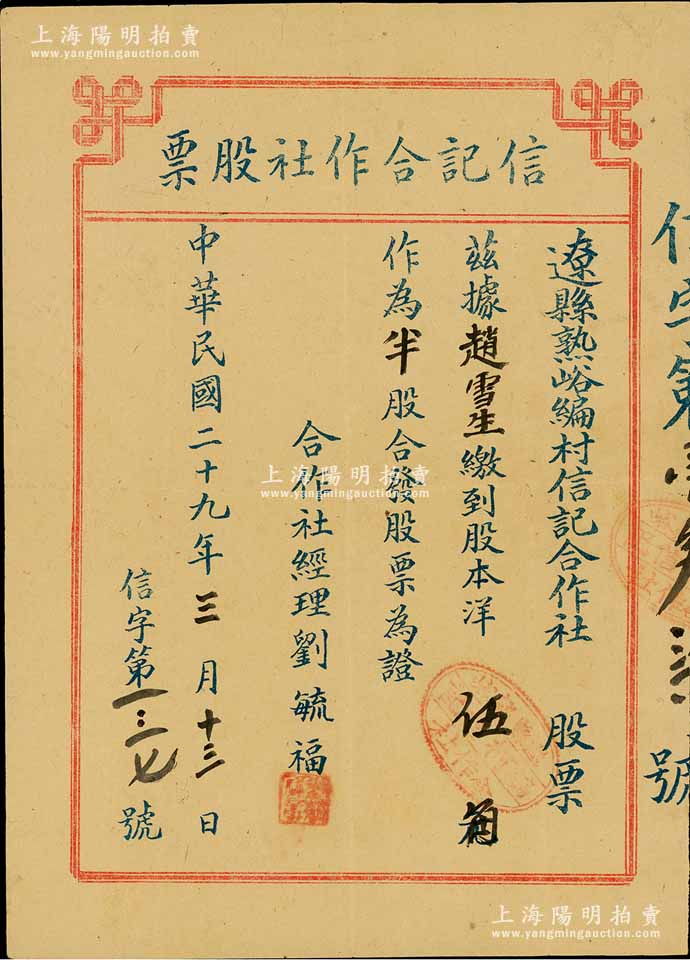 上海陽明拍賣
www.yangmingauction.com
信記合作社股票
遼縣熟峪編村信記合作社股票
茲據趙雪生繳到股本洋伍角
作為半股合發股票為證
合作社經理劉毓福
中華民國二十九年三月十三日
信字第一三七號
信字第
號
上海陽明拍賣
www.yangmingauction.com
上海陽明拍賣
www.yangmingauction.com